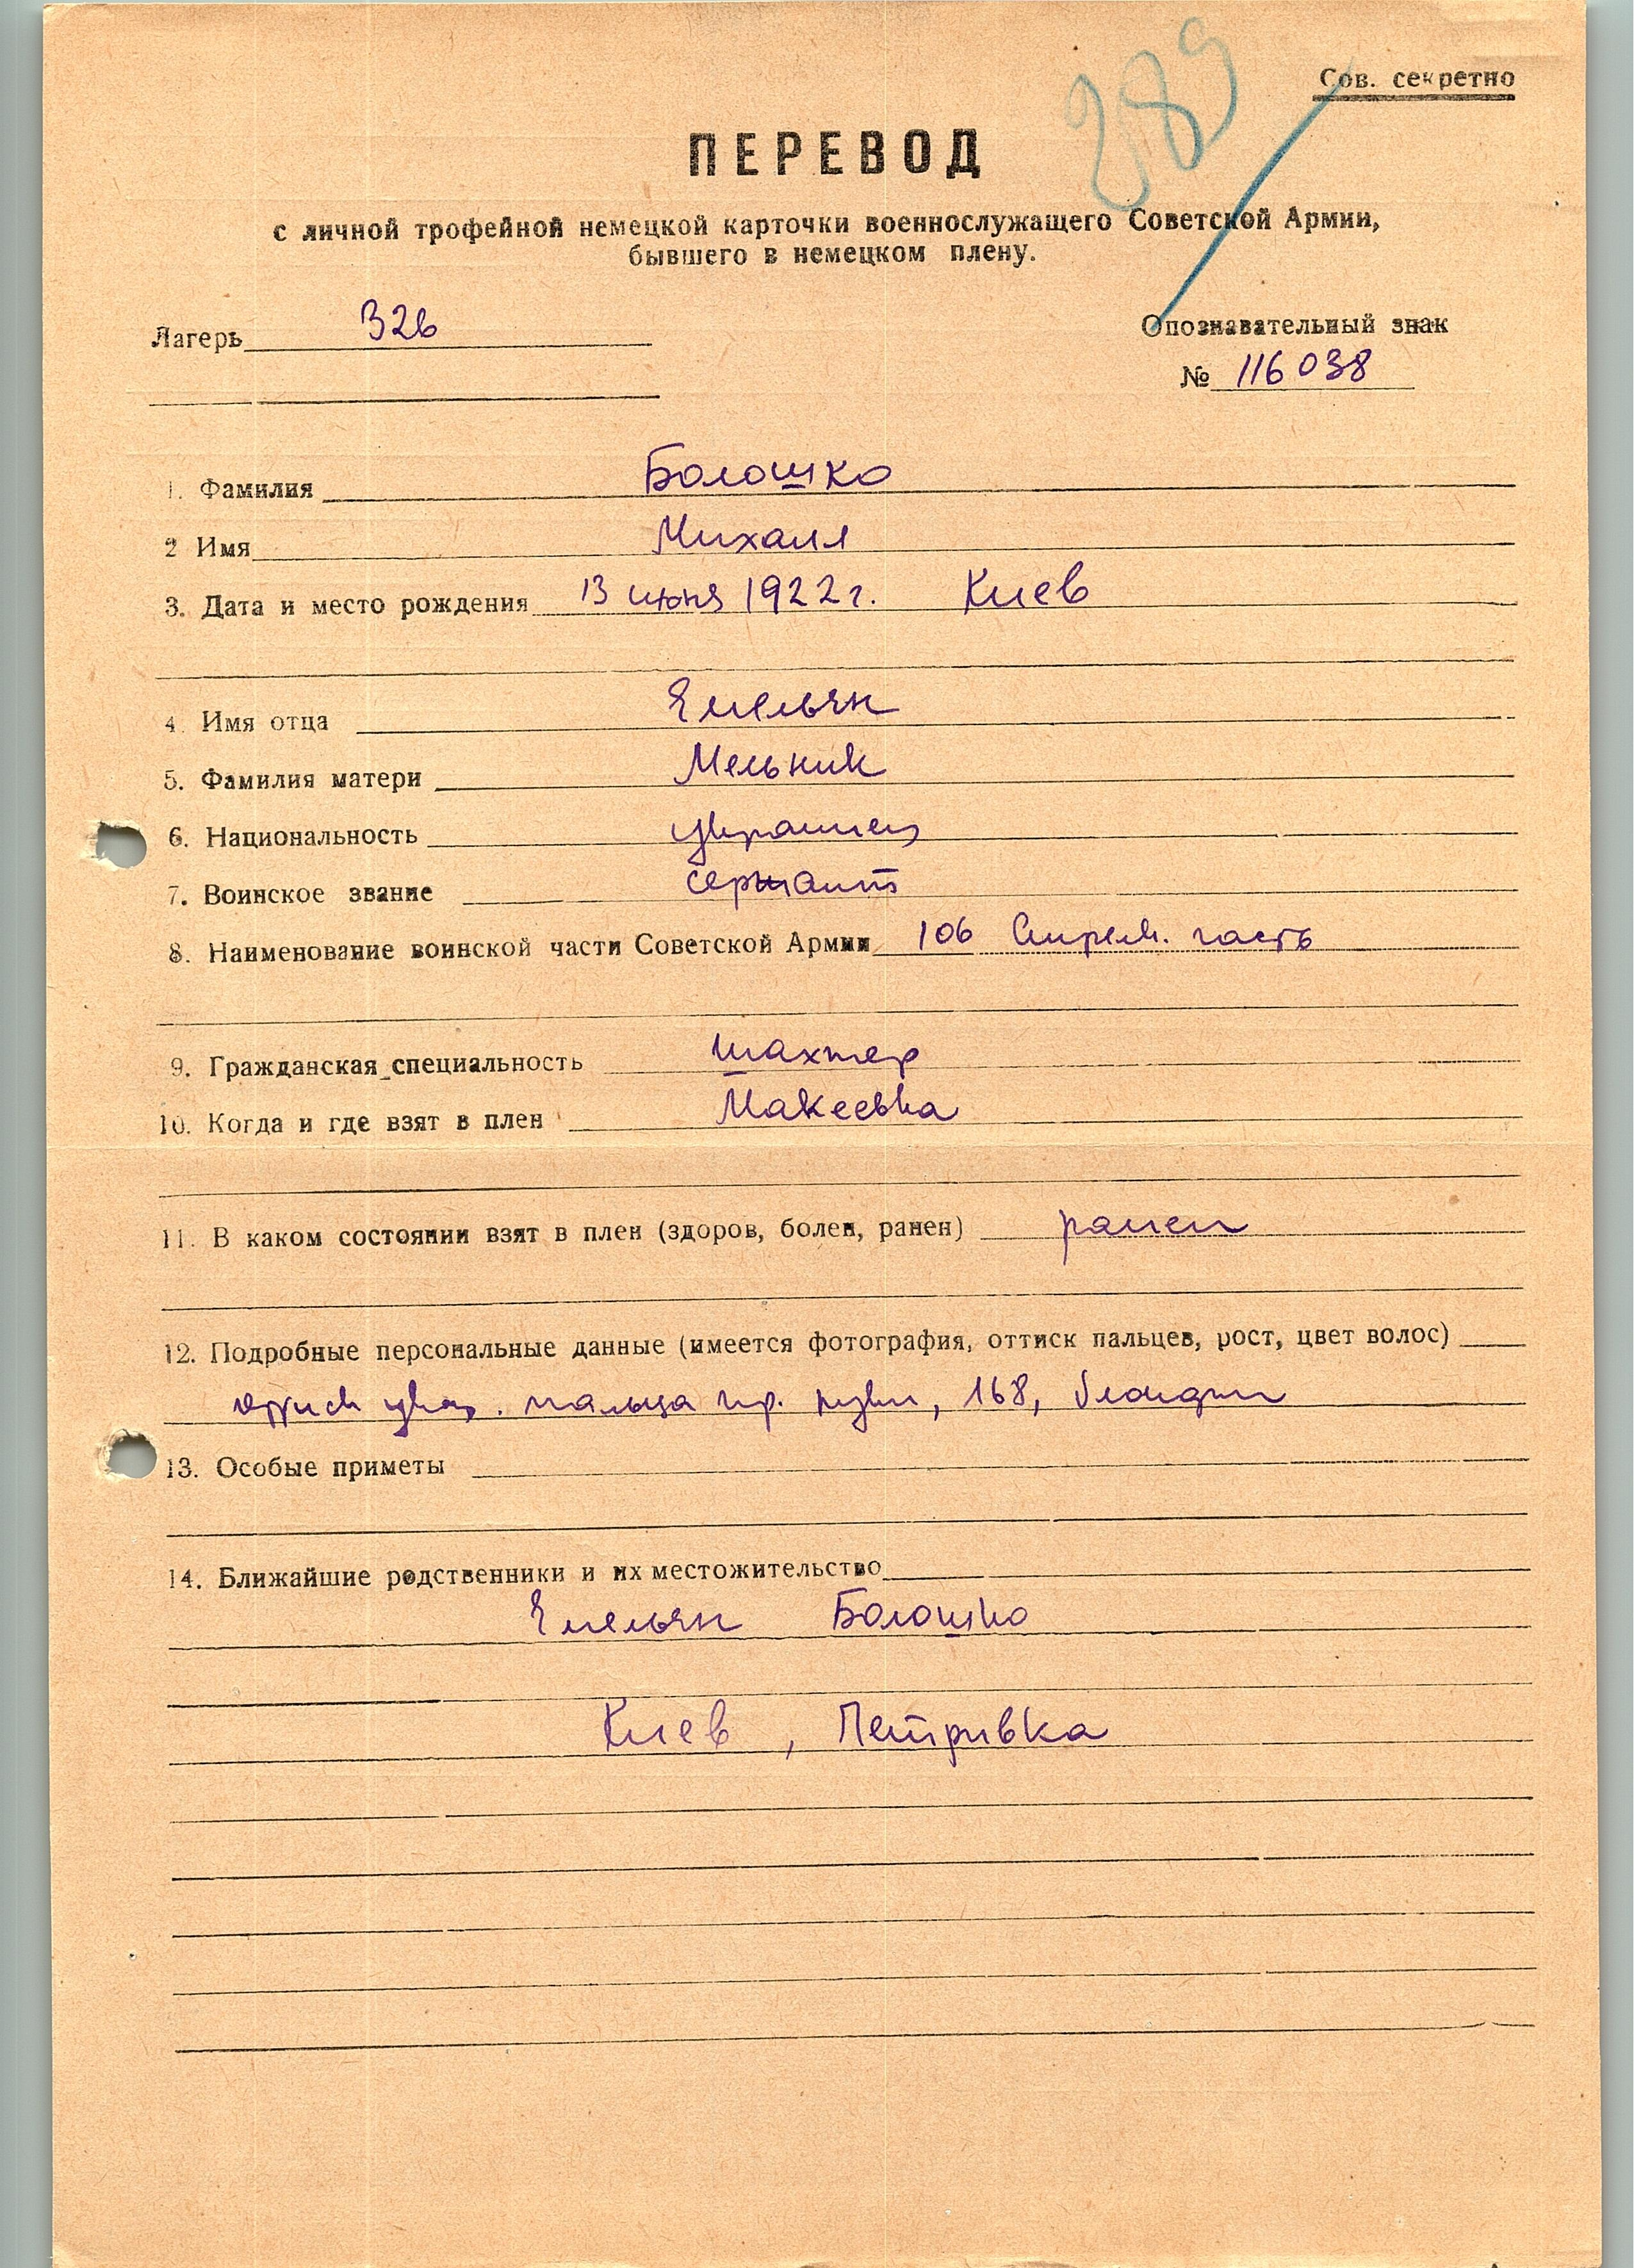 289
Сов. секретно
ПЕРЕВОД
с личной трофейной немецкой карточки военнослужащего Советской Армии,
бывшего в немецком плену.
Лагерь 326
Опознавательный знак
№ 116038
1. Фамилия Болошко
2 Имя Михаил
3. Дата и место рождения 13 июня 1922 г. Киев
4. Имя отца Емельян
5. Фамилия матери Мельник
6. Национальность украинец
7. Воинское звание сержант
8. Наименование воинской части Советской Армии 106 Стрелк. часть
9. Гражданская специальность шахтер
10. Когда и где взят в плен Макеевка
11. В каком состоянии взят в плен (здоров, болен, ранен) ранен
12. Подробные персональные данные (имеется фотография, оттиск пальцев, рост, цвет волос)
указ. пальца пр. руки, 168, блондин
13. Особые приметы
14. Ближайшие родственники и их местожительство
Емельян Болошко
Киев, Петривка